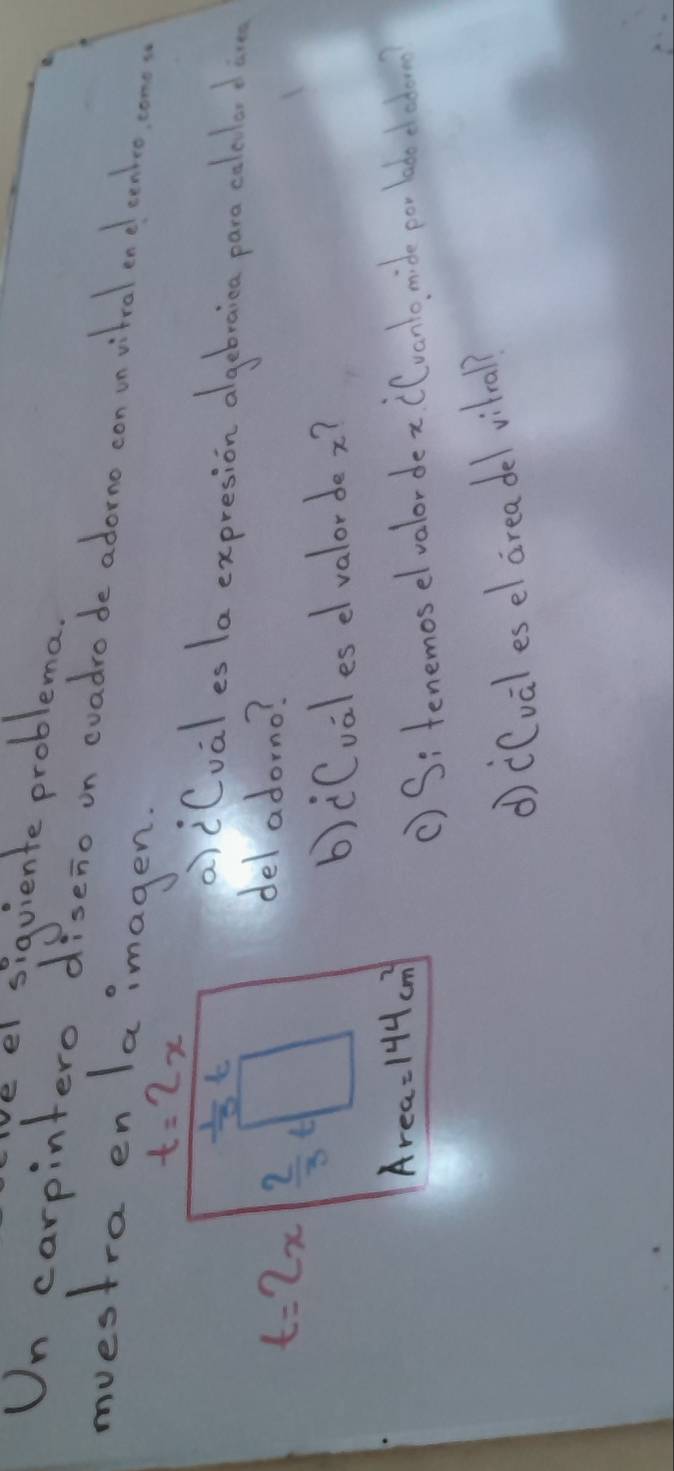 el siguiente problema.
Un carpintero diseño un cuadro de adorno con un vitral en el centro, como se
muestra en la imagen.
t=2x
a) ¿Cuál es la expresión algebraica para calcular el área
del adorno?
1/3 t
t=2x
2/3 t
b) ¿Cuál es el valor de x?
Area=144cm²
c) Si tenemos el valor de x ¿Cuanto mide por lado el adorno?
d) ¿Cuál es el área del vitral?